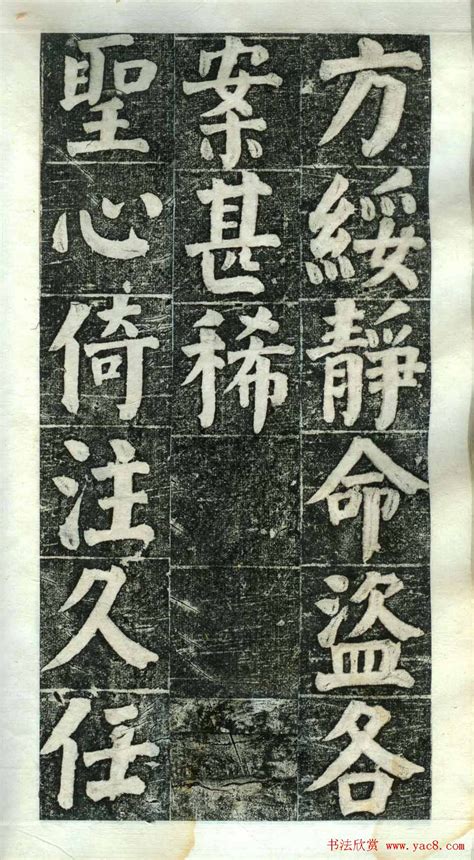 方綏靜命盜各
案甚稀
聖心倚注久任
书法欣赏 www.yac8.com